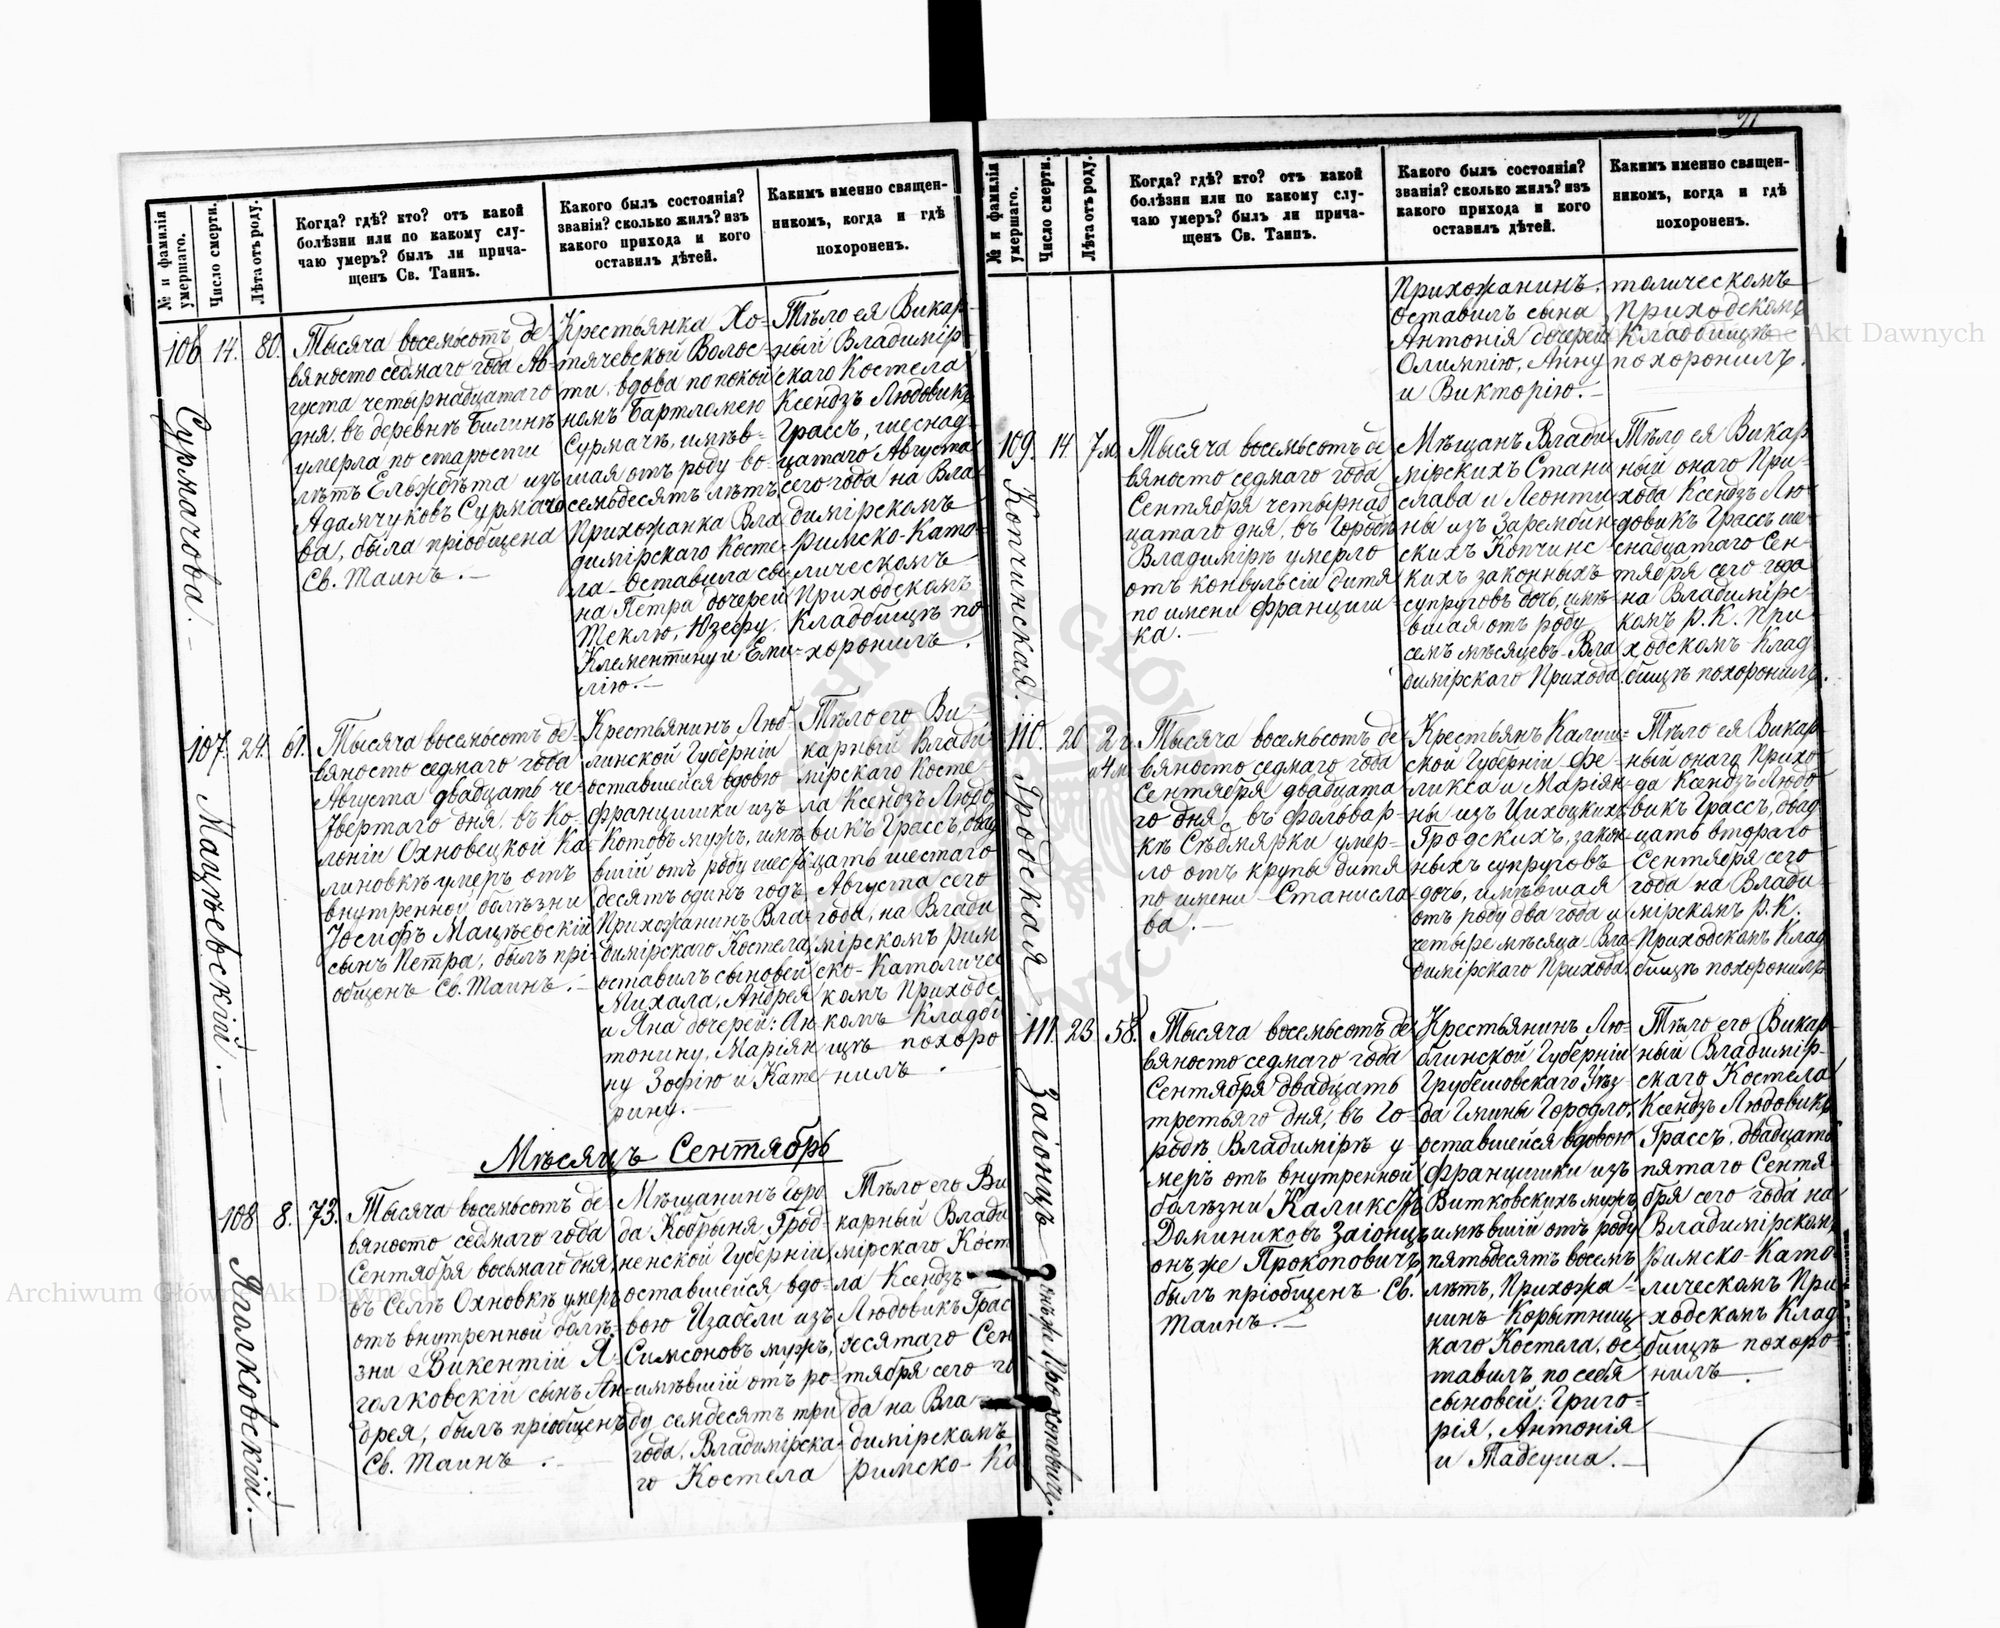 № и фамилія умершаго.
Число смерти.
Лѣта отъ роду.
Когда? гдѣ? кто? отъ какой
болѣзни или по какому слу-
чаю умеръ? былъ ли прича-
щенъ Св. Таинъ.
Какого былъ состоянія?
званія? сколько жилъ? изъ
какого прихода и кого
оставилъ дѣтей.
Какимъ именно священ-
никомъ, когда и гдѣ
похороненъ.
106
Сурмачова.—
14.
80.
Тысяча восемьсотъ де-
вяносто седмаго года Ав-
густа четырнадцатого
дня, въ деревнѣ Билинѣ
умерла по старости
лѣтъ Ельжбѣта изъ
Адамчуковъ Сурмачо
ва, была пріобщена
Св. Таинъ.—
Крестьянка Хо-
тячевской Волос-
ти, вдова по покой
номъ Бартломею
Сурмачѣ, имѣв-
шая отъ роду во-
семьдесятъ лѣтъ
Прихожанка Вла
димірскаго Косте-
ла. Оставила сы-
на Петра дочерей
Теклю, Юзефу,
Клементину и Еми-
лію.—
Тѣло ея Викар-
ный Владимір-
скаго Костела
Ксендзъ Людовикъ
Грассъ, шеснад-
цатаго Августа
сего года на Вла
димірскомъ
Римско-Като-
лическомъ
Приходскомъ
Кладбищѣ по
хоронилъ.
107.
Мацѣевскій.—
24.
61.
Тысяча восемьсотъ де-
вяносто седмаго года
Августа двадцать че-
твертаго дня, въ Ко-
лоніи Охновецкой Ка-
линовкѣ умеръ отъ
внутренной болѣзни
Іосифъ Мацѣевскій
сынъ Петра, былъ прі-
общенъ Св. Таинъ.—
Крестьянинъ Люб-
линской Губерніи
оставшейся вдовою
Францишки изъ
Котовъ мужъ, имѣ
вшій отъ роду шесть
десятъ одинъ годъ
Прихожанинъ Вла-
димірскаго Костела,
оставилъ сыновей
Михала, Андрея
и Яна дочерей: Ан
тонину, Маріян
ну Зофію и Кате
рину.—
Тѣло его Ви
карный Влади
мірскаго Косте
ла Ксендзъ Людо
викъ Грассъ, двад
цать шестаго
Августа сего
года, на Влади
мірскомъ Рим
ско-Католичес
комъ Приходс
комъ Кладби
щѣ похоро
нилъ.
Мѣсяцъ Сентябрь
108
Яголковскій.—
8.
73.
Тысяча восемьсотъ де
вяносто седмаго года
Сентября восьмаго дня,
въ Селѣ Охновкѣ умеръ
отъ внутренной болѣ-
зни Викентій Я-
голковскій сынъ Ан-
дрея, былъ пріобщенъ
Св. Таинъ.—
Мѣщанинъ Горо
да Кобрыня, Грод-
ненской Губерніи,
оставшейся вдо-
вою Изабели изъ
Симсоновъ мужъ,
имѣвшій отъ ро-
ду семдесятъ три
года, Владимірска-
го Костела
Тѣло его Ви
карный Влади
мірскаго Кост
ла Ксендзъ
Людовикъ Грас
десятаго Сен
тября сего го
да на Вла
димірскомъ
Римско-Ка
21
№ и фамилія умершаго.
Число смерти.
Лѣта отъ роду.
Когда? гдѣ? кто? отъ какой
болѣзни или по какому слу-
чаю умеръ? былъ ли прича-
щенъ Св. Таинъ.
Какого былъ состоянія?
званія? сколько жилъ? изъ
какого прихода и кого
оставилъ дѣтей.
Какимъ именно священ-
никомъ, когда и гдѣ
похороненъ.
Прихожанинъ.
Оставилъ сына
Антонія дочерей
Олимпію, Анну
и Викторію.—
толическомъ
Приходскомъ
Кладбищѣ
похоронилъ.
109.
Копчинская.
14.
7 м.
Тысяча восемьсотъ де
вяносто седмаго года
Сентября четырнад
цатаго дня, въ Городѣ
Владимірѣ умерло
отъ конвульсіи дитя
по имени Францишка.—
Мѣщанъ Влади
мірскихъ Стани
слава и Леонти
ны изъ Зарембин-
скихъ Копчинс-
кихъ законныхъ
супруговъ дочь, имѣ-
вшая отъ роду
семъ мѣсяцевъ Вла
димірскаго Прихода
Тѣло ея Викар
ный онаго При-
хода Ксендзъ Лю
довикъ Грассъ ше-
снадцатаго Сен-
тября сего года
на Владимірс-
комъ Р. К. При
ходскомъ Клад
бищѣ похоронилъ.
110.
Гродская
20
2 г.
и 4 м.
Тысяча восемьсотъ де
вяносто седмаго года
Сентября двадцата
го дня, въ фольвар-
кѣ Сѣдмярки умер-
ло отъ крупы дитя
по имени Станисла
ва.—
Крестьянъ Калиш-
ской Губерніи Фе-
ликса и Маріян-
ны изъ Цихоцкихъ
Гродскихъ, закон-
ныхъ супруговъ
дочь, имѣвшая
отъ роду два года и
четыре мѣсяца Вла-
димірскаго Прихода.
Тѣло ея Викар
ный онаго Прихо-
да Ксендзъ Людо
викъ Грассъ, двад
цать втораго
Сентября сего
года на Влади-
мірскомъ Р. К.
Приходскомъ Клад
бищѣ похоронилъ
111.
Заіонцъ онъ же Прокоповичъ.
23
58.
Тысяча восемьсотъ де-
вяносто седмаго года
Сентября двадцать
третьяго дня, въ Го-
родѣ Владимірѣ у-
меръ отъ внутренной
болѣзни Каликстъ
Доминиковъ Заіонцъ
онъ же Прокоповичъ,
былъ пріобщенъ Св.
Таинъ.—
Крестьянинъ Лю-
блинской Губерніи
Грубешовскаго Уѣз-
да Гмины Городло,
оставшейся вдовою
Францишки изъ
Витковскихъ мужъ
имѣвшій отъ роду
пятьдесятъ восемь
лѣтъ, Прихожа-
нинъ Корытниц-
каго Костела, ос-
тавилъ по себѣ
сыновей: Григо-
рія, Антонія
и Тадеуша.—
Тѣло его Викар-
ный Владимір-
скаго Костела
Ксендзъ Людовикъ
Грассъ, двадцать
пятаго Сентя-
бря сего года на
Владимірскомъ
Римско-Като-
лическомъ При
ходскомъ Клад
бищѣ похоро-
нилъ.
Archiwum Główne Akt Dawnych